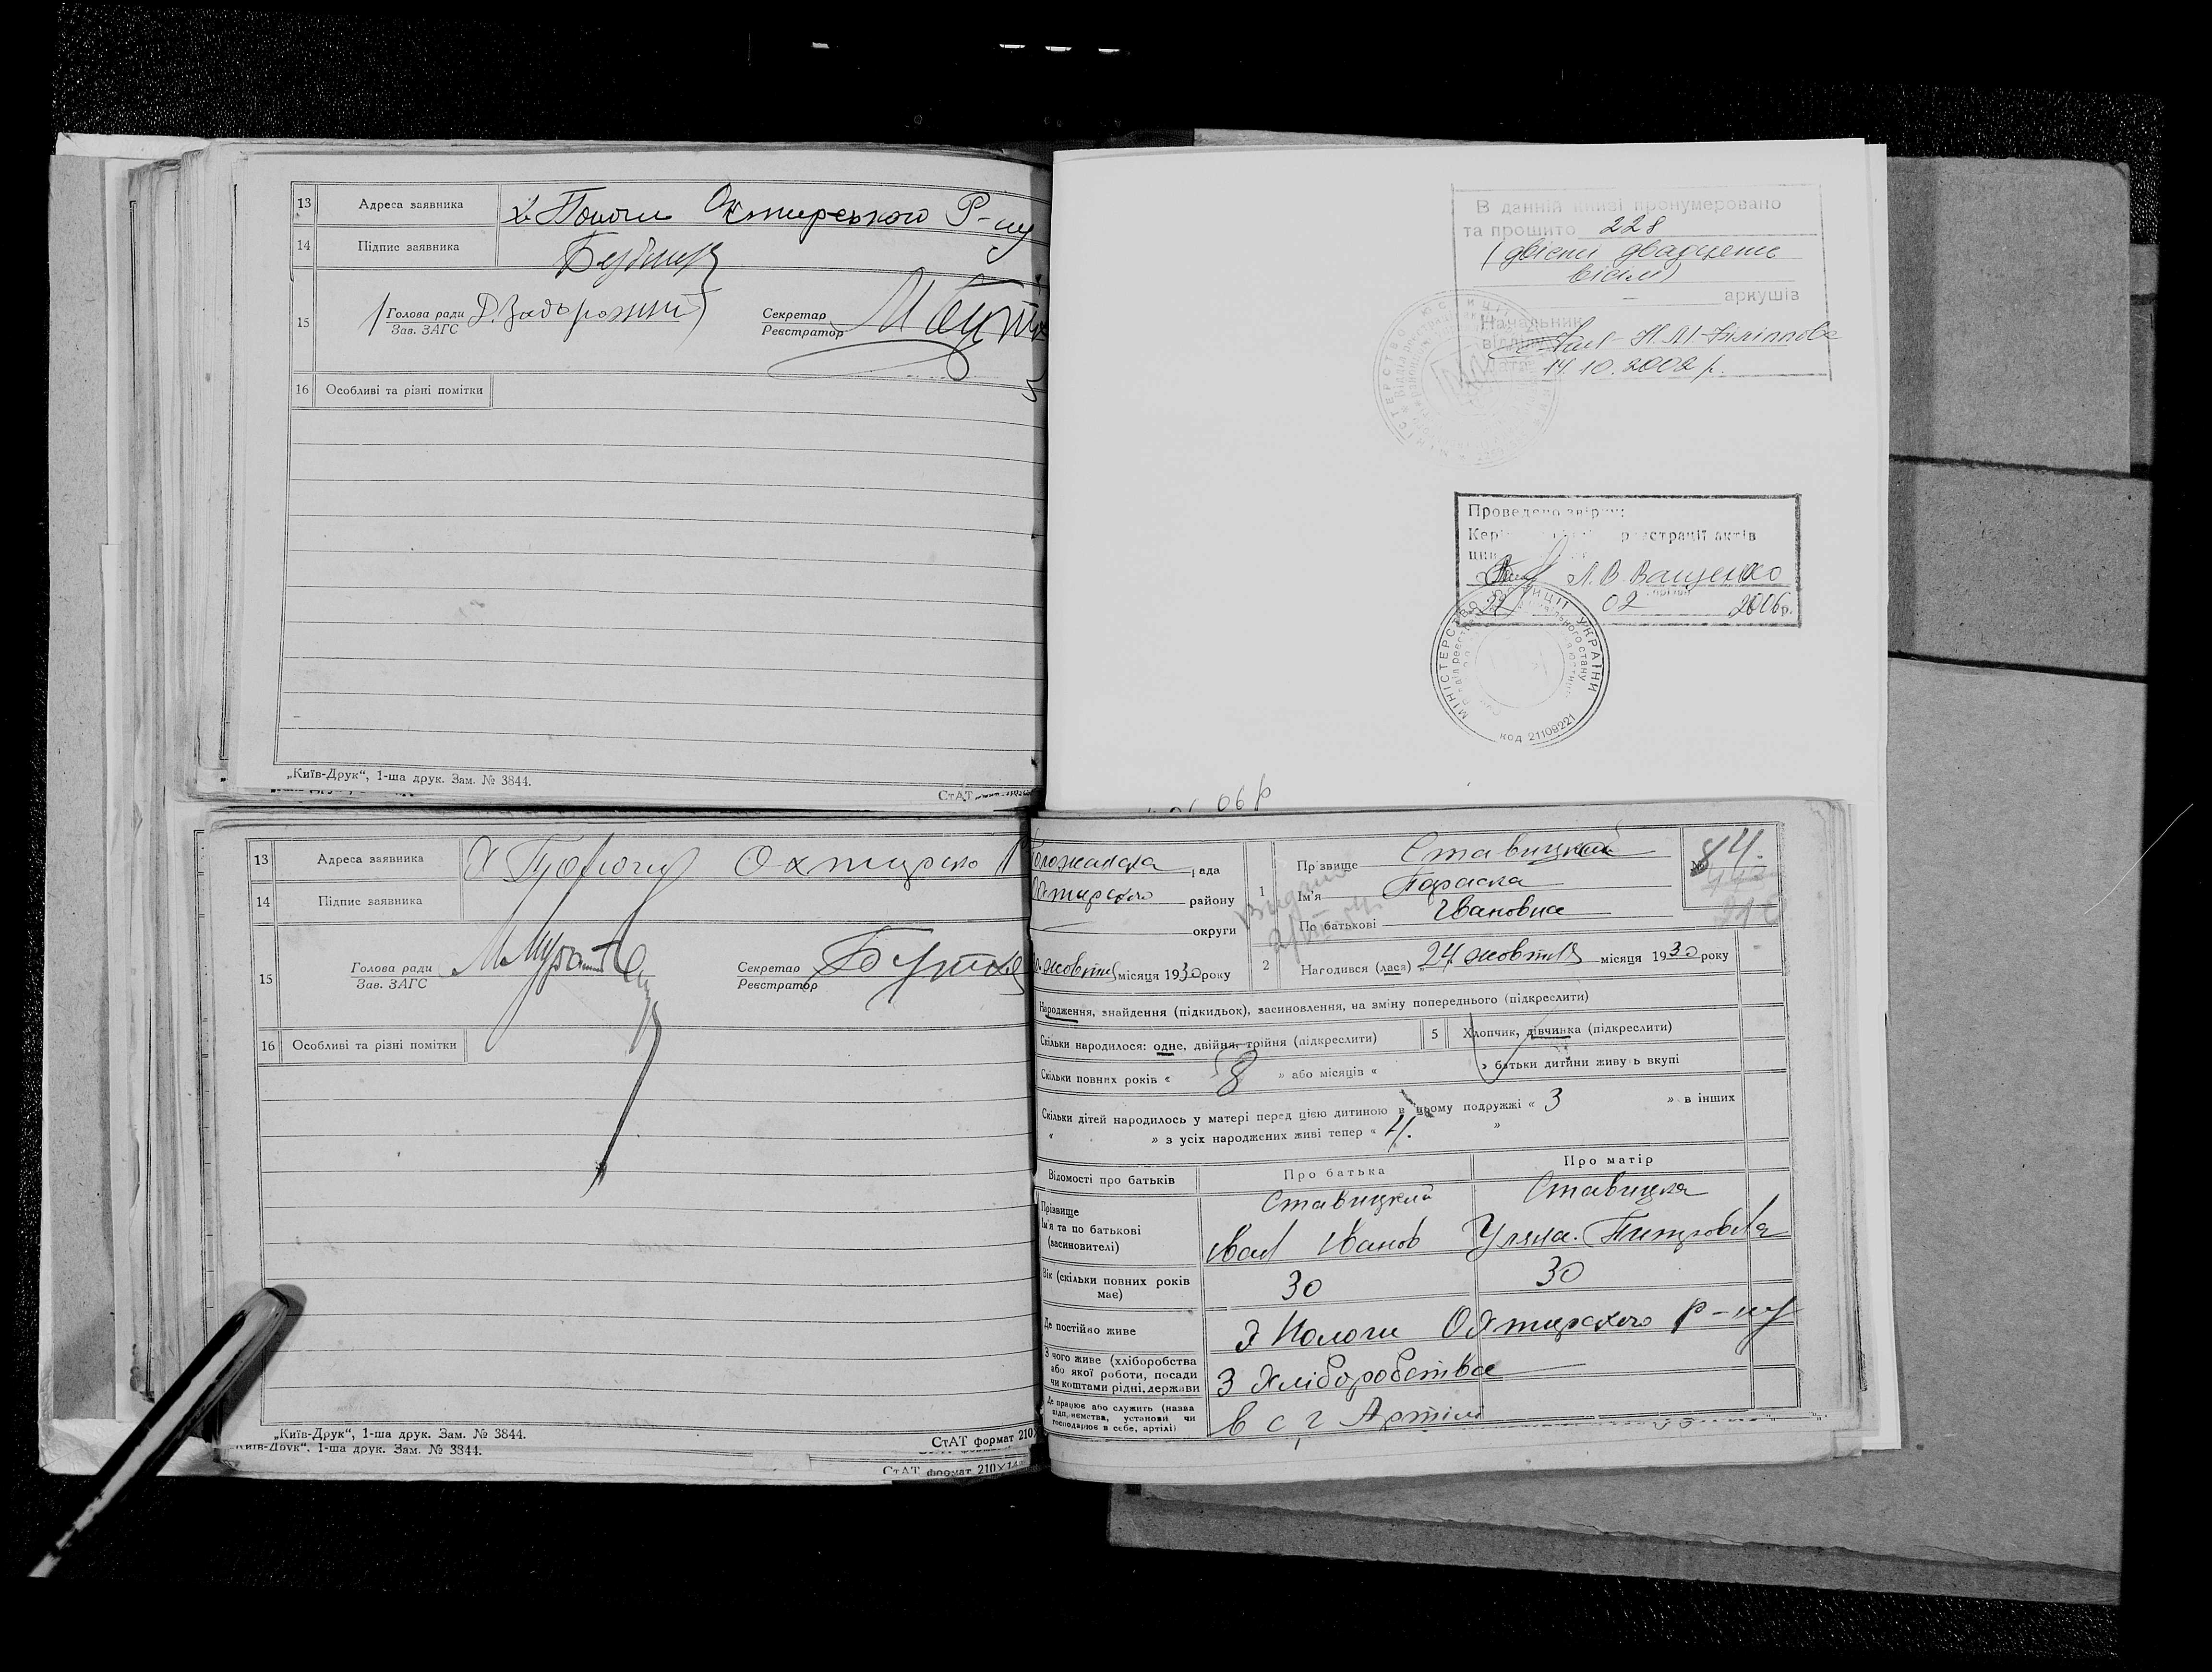 13 Адреса заявника х Пологи Охтирського Р-ну
14 Підпис заявника
15 Голова ради Д. Задорожний Секретар
Зав. ЗАГС Реєстратор
16 Особливі та різні помітки
„Київ-Друк“, 1-ша друк. Зам. № 3844.
СтАТ
В данній книзі пронумеровано
та прошито 228
(двісти двадцять
вісім)
аркушів
Начальник
відділу
Дата 14.10.2002 р.
Проведено звірку:
реєстрації актів
Л.В. Ващенко
27 02 2006р.
МІНІСТЕРСТВО ЮСТИЦІЇ УКРАЇНИ
код 21108221
06 р
13 Адреса заявника Х Пологи
14 Підпис заявника
15 Голова ради Секретар
Зав. ЗАГС Реєстратор
16 Особливі та різні помітки
„Київ-Друк“, 1-ша друк. Зам. № 3844.
СтАТ формат 210×
Київ-Друк“, 1-ша друк. Зам. № 3844.
СтАТ формат 210×14
рада
району
округи
жовтня місяця 1930 року
1 Прізвище Ставицкий
Ім'я Параска
По батькові Ивановна
№ 84.
2 Народився (лася) „24 жовтня місяця 1930 року
Народження, знайдення (підкидьок), засиновлення, на зміну попереднього (підкреслити)
Скільки народилося: одне, двійня, трійня (підкреслити) 5 Хлопчик, дівчинка (підкреслити)
Скільки повних років « 8 » або місяців « » батьки дитини живуть вкупі
Скільки дітей народилось у матері перед цією дитиною в цьому подружжі « 3 » в інших
« » з усіх народжених живі тепер « 4. »
Відомості про батьків Про батька Про матір
Прізвище Ставицкий Ставицка
Ім'я та по батькові Иван Иванов Уляна Питровна
(засиновителі)
Вік (скільки повних років має) 30 30
Де постійно живе Х Пологи Охтирского р-ну
З чого живе (хліборобства
або якої роботи, посади З Хліборобства
чи коштами рідні, держави
Де працює або служить (назва
підприємства, установи чи в с г Артілі
господарює в себе, артілі)